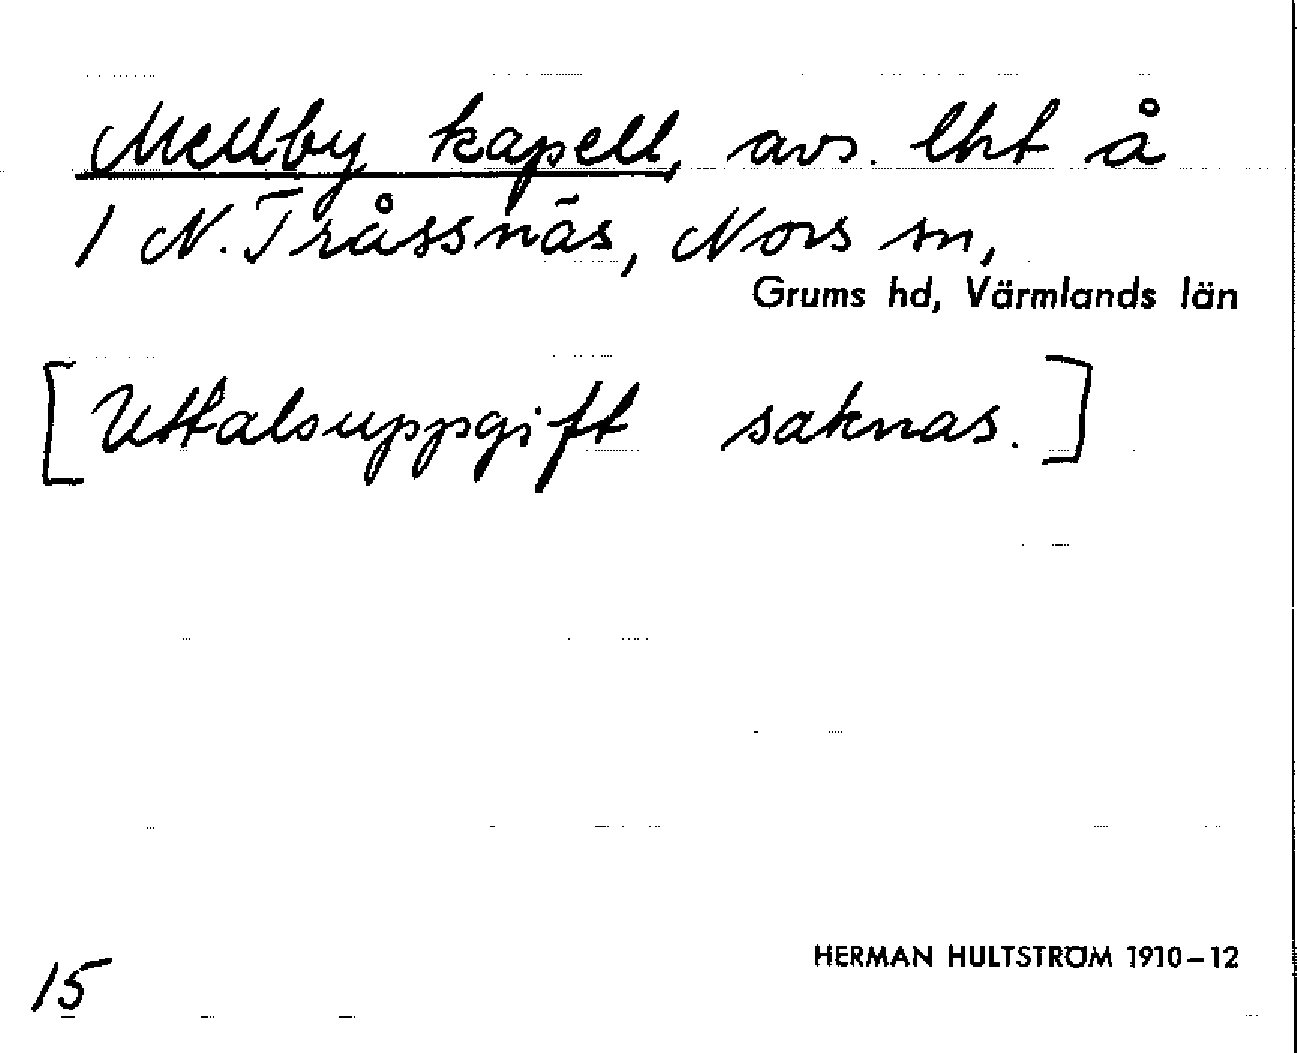 Mellby kapell, avs. lht å
1 N. Tråssnäs, Nors sn,
Grums hd, Värmlands län
[Uttalsuppgift saknas.]
HERMAN HULTSTRÖM 1910–12
15